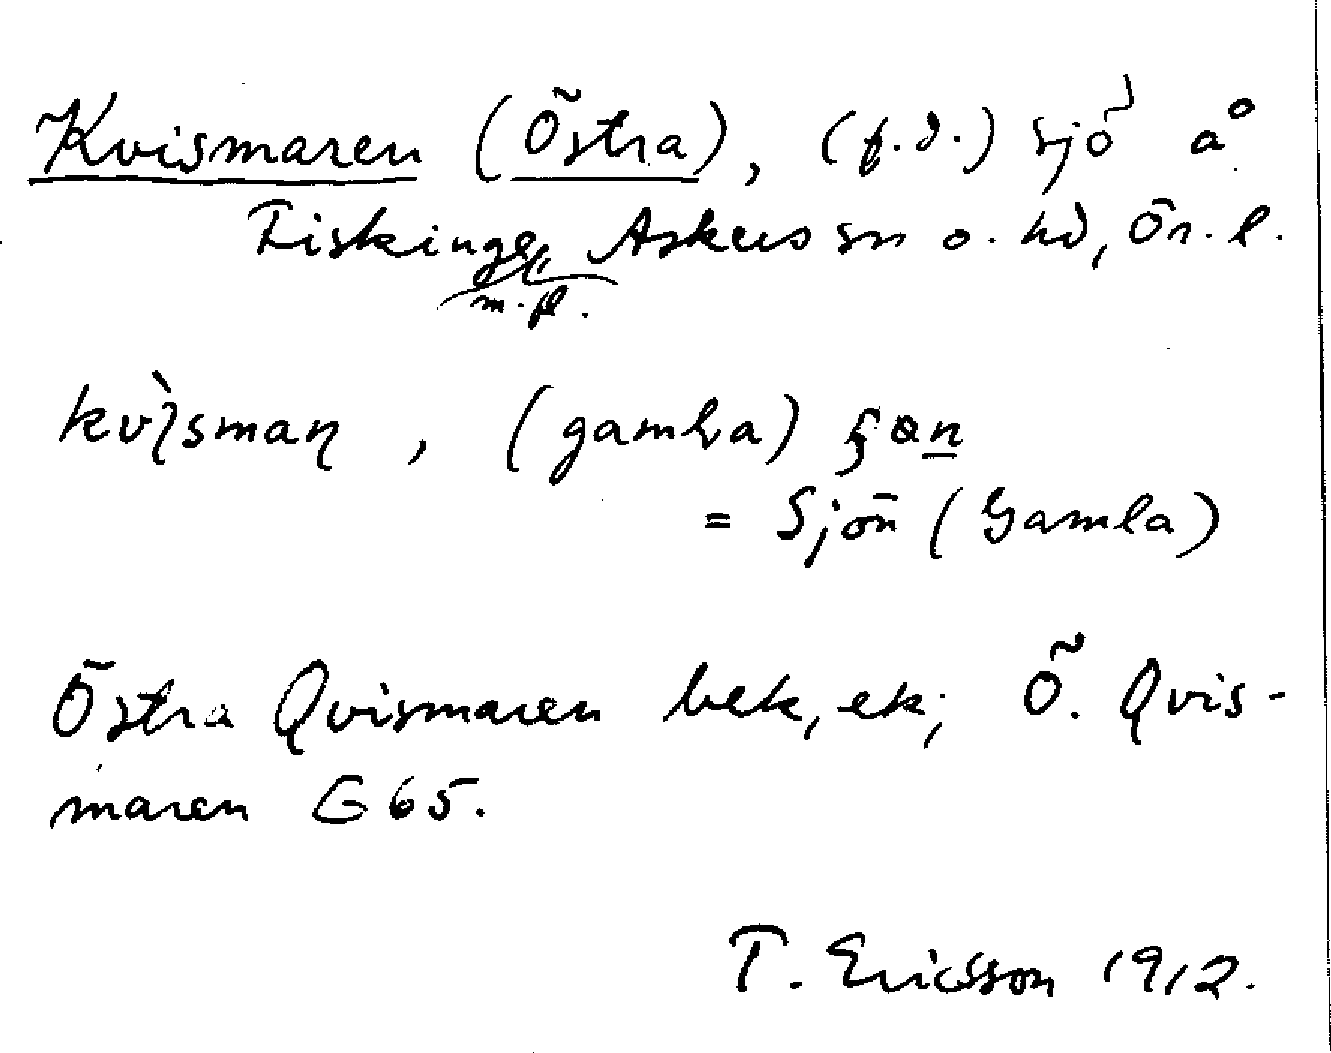 Kvismaren (Östra), (f.d.) sjö å
Fiskinge, Askers sn o. hd, Ör. l.
m.fl.
kvìsmaɳ, (gamla)
= Sjön (Gamla)
Östra Qvismaren bek, ek; Ö. Qvis-
maren G65.
T. Ericsson 1912.